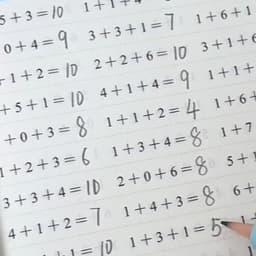 5+3=10 1+1+
0+4=9 3+3+1=7 1+6+1
+1+2=10 2+2+6=10 3+1+6
+5+1=10 4+1+4=9 1+1+
+0+3=8 1+1+2=4 1+6+
1+2+3=6 1+3+4=8 1+7
3+3+4=10 2+0+6=8 5+1
4+1+2=7 1+4+3=8 6+
+1=10 1+3+1=5 1+